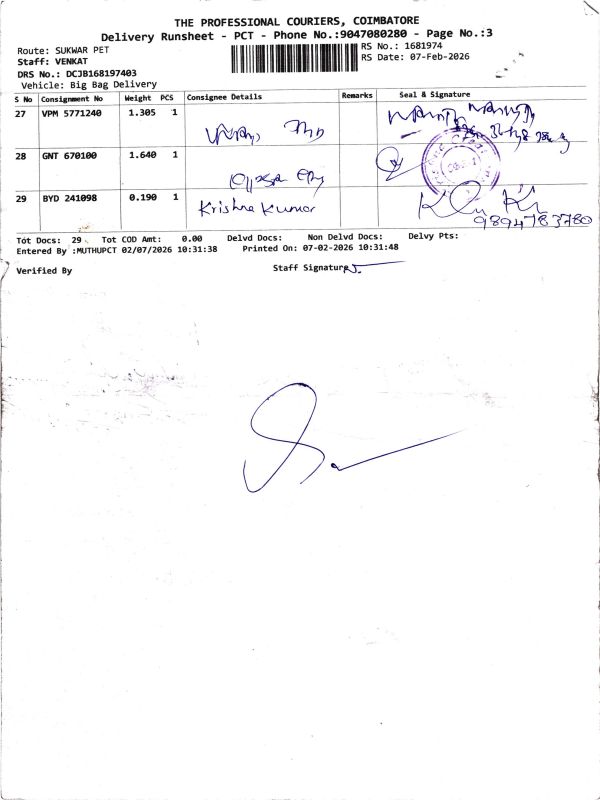 THE PROFESSIONAL COURIERS, COIMBATORE
Delivery Runsheet - PCT - Phone No.:9047080280 - Page No.:3
Route: SUKWAR PET
RS No.: 1681974
Staff: VENKAT
RS Date: 07-Feb-2026
DRS No.: DCJB168197403
Vehicle: Big Bag Delivery
S No Consignment No Weight PCS Consignee Details Remarks Seal & Signature
27 VPM 5771240 1.305 1
28 GNT 670100 1.640 1
29 BYD 241098 0.190 1 Krishna Kumar
9894783780
Tot Docs: 29 Tot COD Amt: 0.00 Delvd Docs: Non Delvd Docs: Delvy Pts:
Entered By :MUTHUPCT 02/07/2026 10:31:38 Printed On: 07-02-2026 10:31:48
Verified By Staff Signature